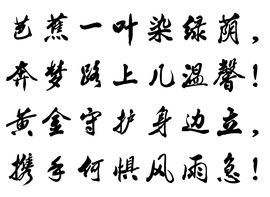 芭蕉一叶染绿荫，
奔梦路上几温馨！
黄金守护身边立，
携手何惧风雨急！